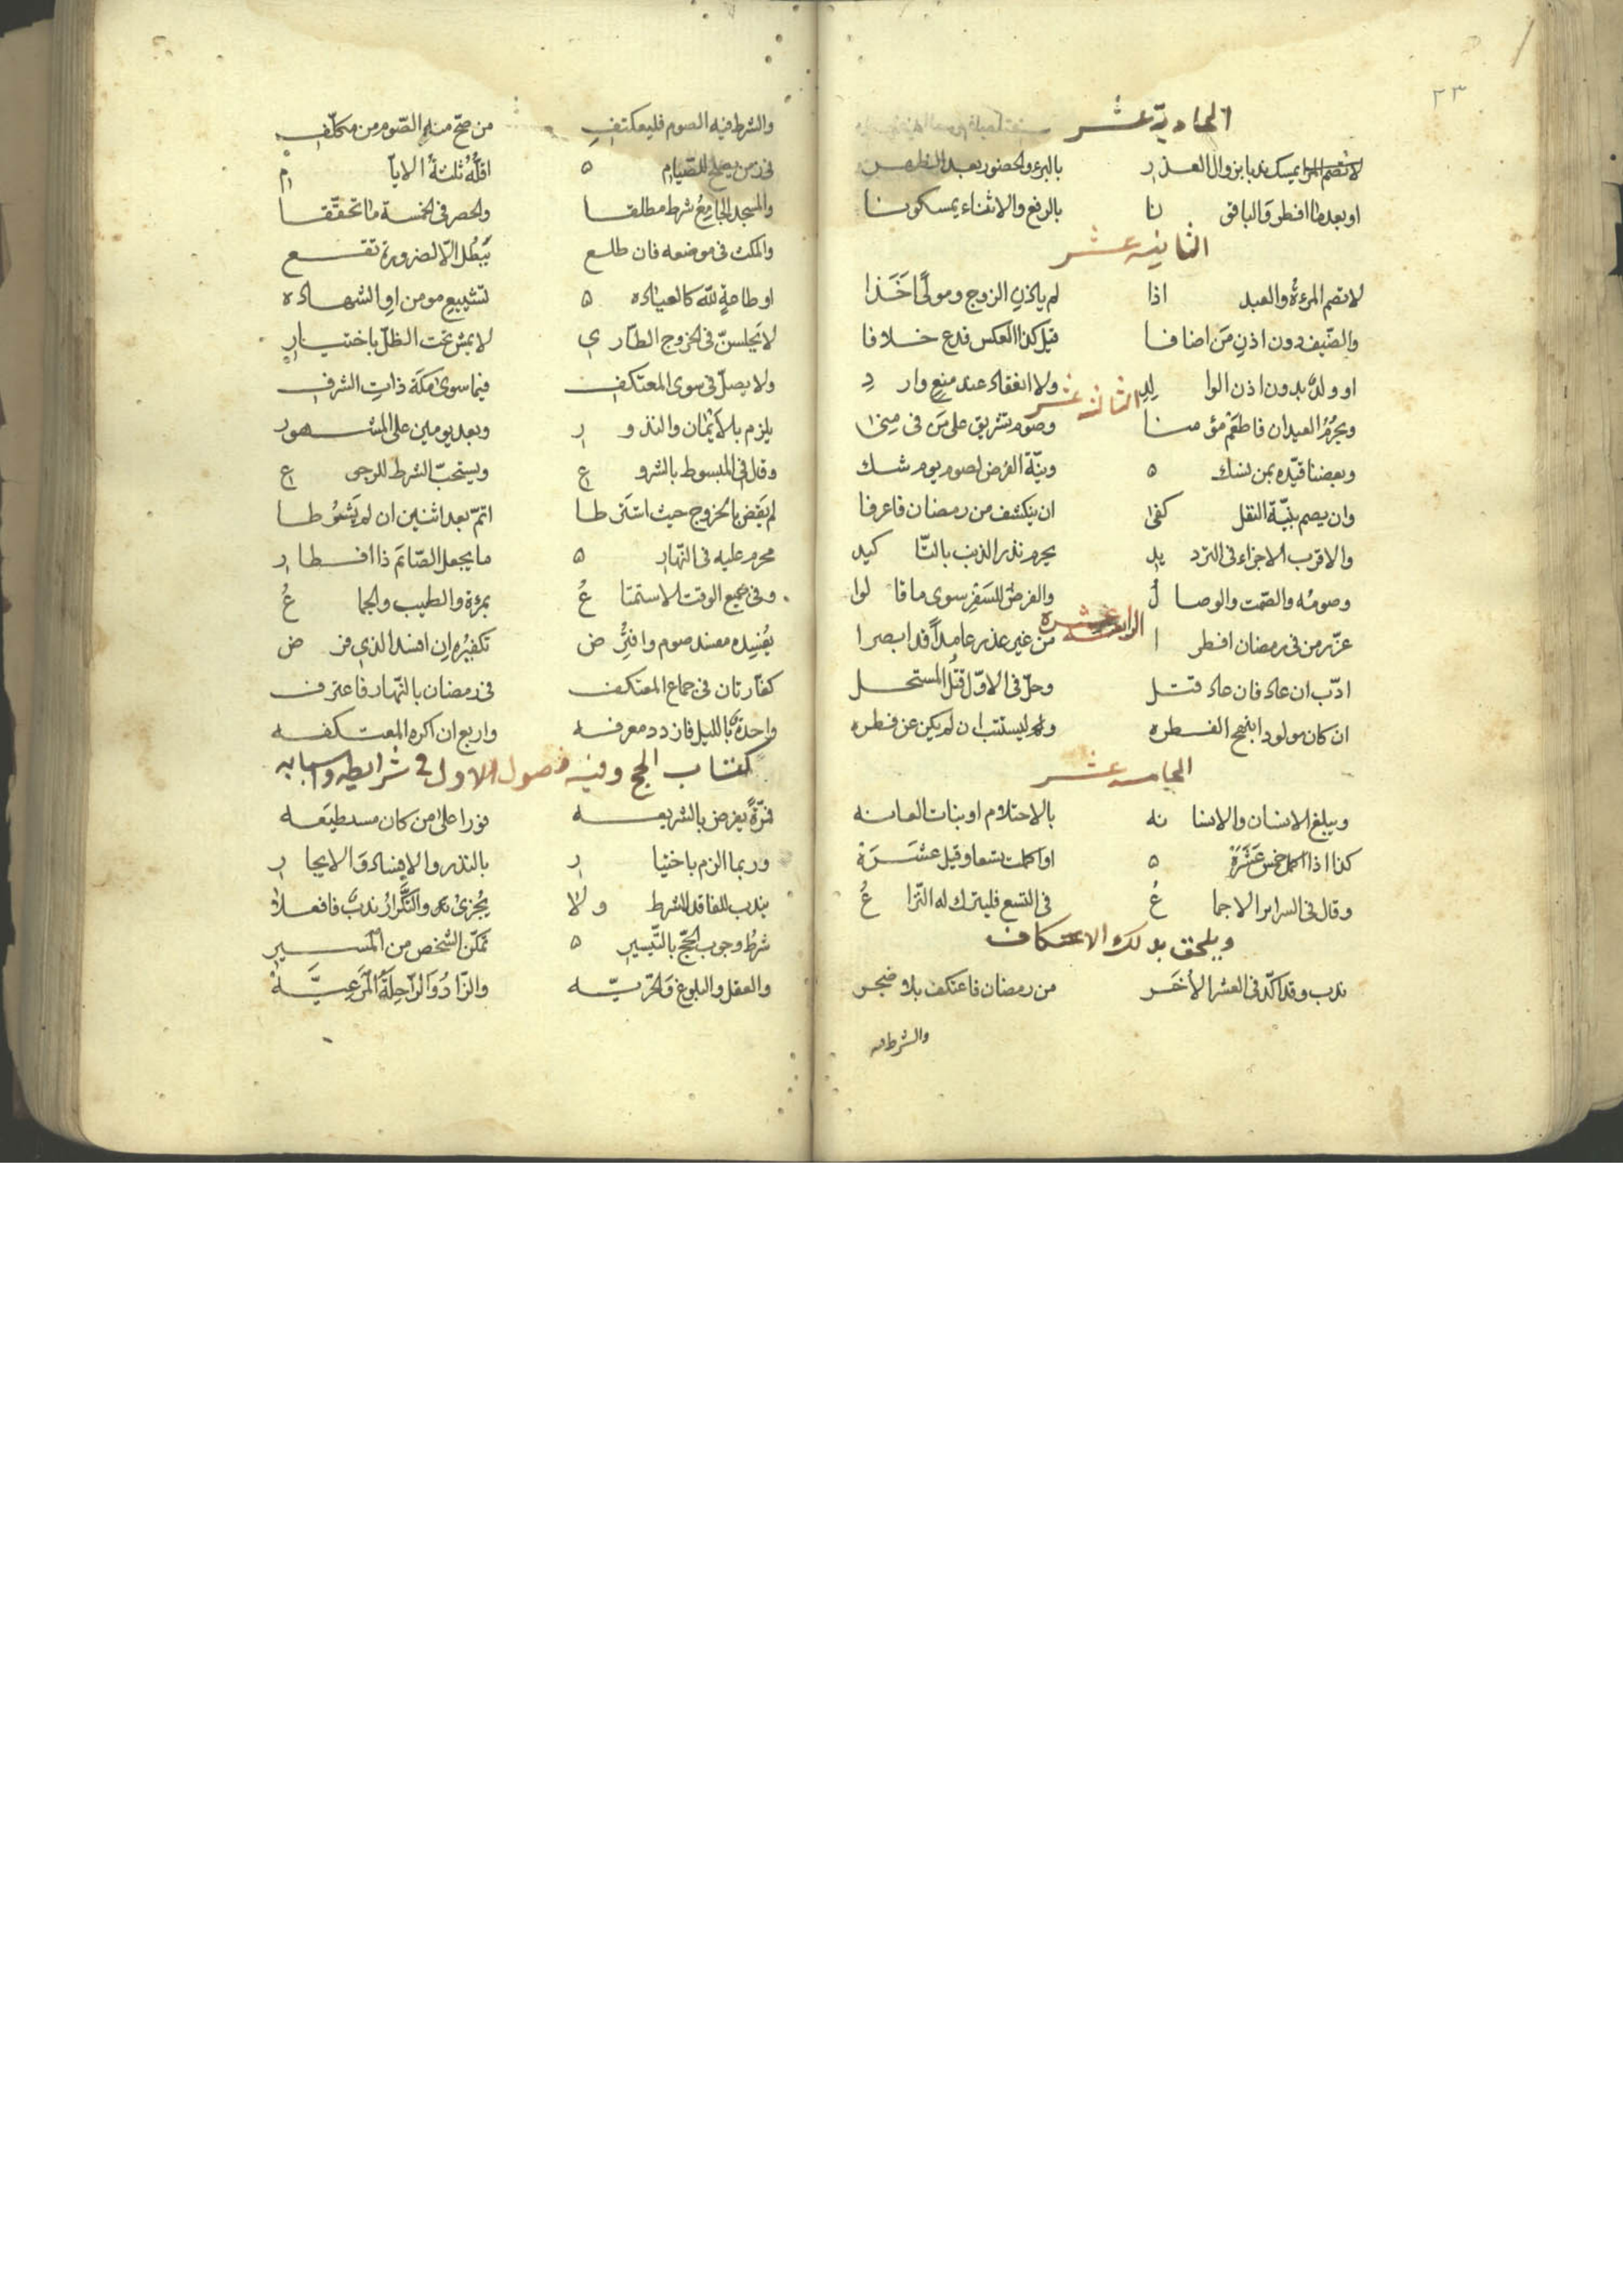 ٢٣
الحادية عشر
يمسك ندبا بزوال العذر بالبرء والحضور بعد الفطر
او بعد ما افطر والباقونا بالرفع والاثناء يمسكونا
الثانيه عشر
لا تصم المرءة والعبد اذا لم ياذن الزوج ومولى اخذا
والضيف دون اذن من اضافا قيل كذا العكس فدع خلافا
او ولد بدون اذن الوالد ولا انعقاد عند منع وارد
الثالثه عشر
ويحرم العيدان فاطعم مؤمنا وصوم تشريق على من فى منى
وبعضنا قيده بمن نسك ونية الفرض لصوم يوم شك
وان يصم بنية النفل كفى ان ينكشف من رمضان فاعرفا
والاقرب الاجزاء فى الترديد يحرم نذر الذنب بالتاكيد
وصومه والصمت والوصال والفرض للسفر سوى ما قالوا
الرابعة عشره
عزر من فى رمضان افطرا من غير عذر عامدا قد ابصرا
ادب ان عاد فان عاد قتل وحل فى الاول قتل المستحل
ان كان مولودا بنهج الفطره وليستتب ان لم يكن عن فطره
الخامسه عشر
ويبلغ الانسان والانسانه بالاحتلام او بنات العانه
كذا اذا اكمل خمس عشرة او اكملت تسعا وقيل عشرة
وقال فى السراير الاجماع فى التسع فليترك له النزاع
ويلحق بذلك الاعتكاف
ندب وقد اكد فى العشر الاخر من رمضان فاعتكف بلا ضجر
والشرط فيه
والشرط فيه الصوم فليعتكف من صح منه الصوم من مكلف
فى زمن يصلح للصيام اقله ثلثة الايام
والمسجد الجامع شرط مطلقا والحصر فى الخمسة ما تحققا
والمكث فى موضعه فان طلع يبطل الا لضرورة تقع
او طاعة لله كالعياده لتشييع مومن او الشهاده
لا يجلسن فى الخروج الطارى لا يمش تحت الظل باختيار
ولا يصل فى سوى المعتكف فيما سوى مكة ذات الشرف
يلزم بالايمان والنذور وبعد يومين على المشهور
وقال فى المبسوط بالشروع ويستحب الشرط للرجوع
لم يقض بالخروج حيث اشترطا اتم بعد اثنين ان لم يشرطا
محرم عليه فى النهار ما يجعل الصائم ذا افطار
وفى جميع الوقت الاستمتاع بمرءة والطيب والجماع
يفسده مفسد صوم تكفيره ان افسد الذى فرض
كفارتان فى جماع المعتكف فى رمضان بالنهار فاعترف
واحدة بالليل فازدد معرفه واربع ان اكره المعتكفه
كتاب الحج وفيه فصول الاول فى شرايطه واسبابه
فمرة يفرض بالشريعه فورا على من كان مسطيعه
وربما الزم باختيار بالنذر والافساد والايجار
يندب للفاقد للشرط ولا يجزى والتكرار ندب فافعلا
شرط وجوب الحج بالتيسير تمكن الشخص من المسير
والعقل والبلوغ والحريه والزاد والراحلة المرعيه